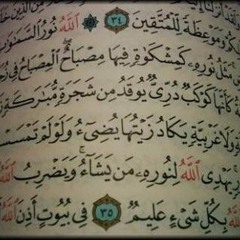 وَمَوْعِظَةً لِّلْمُتَّقِينَ ٣٤ ۞ ٱللَّهُ نُورُ ٱلسَّمَٰوَٰتِ
مَثَلُ نُورِهِۦ كَمِشْكَوٰةٍ فِيهَا مِصْبَاحٌ ٱلْمِصْبَاحُ فِى
كَأَنَّهَا كَوْكَبٌ دُرِّىٌّ يُوقَدُ مِن شَجَرَةٍ مُّبَٰرَكَةٍ
وَلَا غَرْبِيَّةٍ يَكَادُ زَيْتُهَا يُضِىٓءُ وَلَوْ لَمْ تَمْسَسْ
يَهْدِى ٱللَّهُ لِنُورِهِۦ مَن يَشَآءُ وَيَضْرِبُ ٱللَّهُ
ٱللَّهُ بِكُلِّ شَىْءٍ عَلِيمٌ ٣٥ فِى بُيُوتٍ أَذِنَ ٱللَّهُ